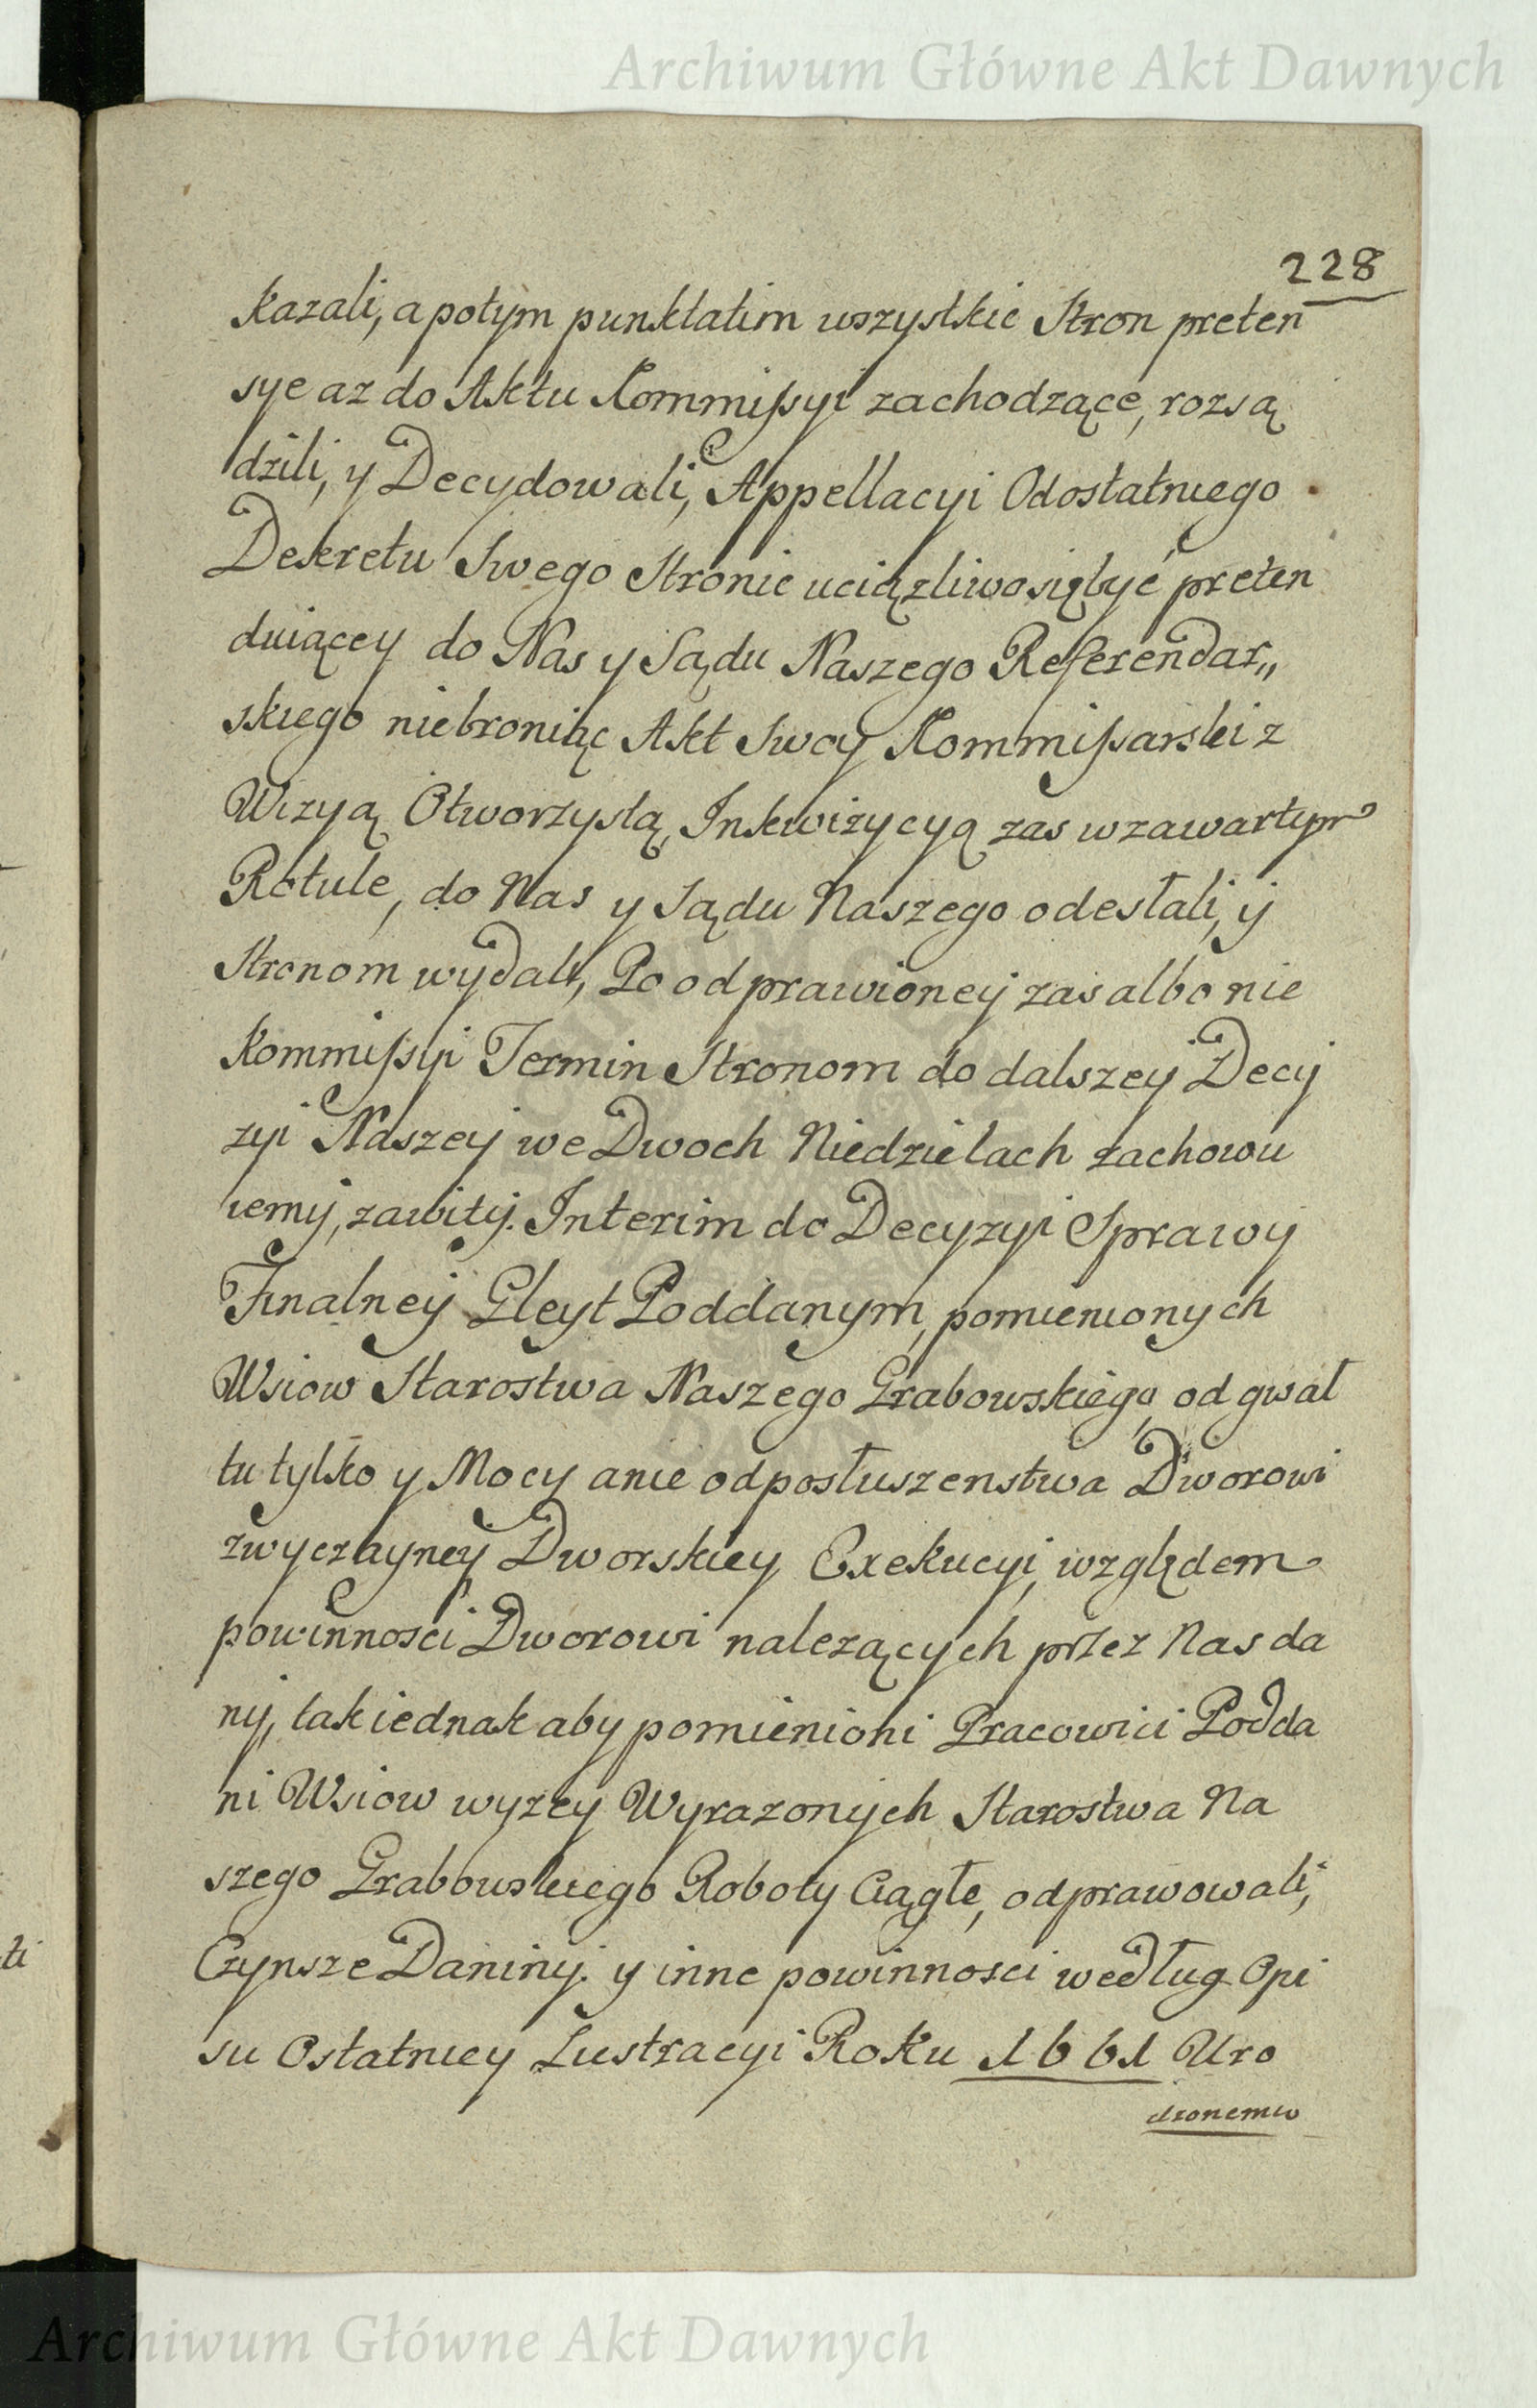 Archiwum Główne Akt Dawnych
228
kazali, a potym punktatim wszystkie Stron preten
sye az do Aktu Kommissyi zachodzące, rozsą
dzili, y Decydowali, Appellacyi Odostatniego
Dekretu Swego Stronie uciązliwosiębyć preten
duiącey do Nas y Sądu Naszego Referendar„
skiego niebroniąc Akt Swoy Kommissarski z
Wizyą Otworzystą, Inkwizycyą zas wzawartym
Rotule, do Nas y Sądu Naszego odesłali, y
Stronom wydali, Po odprawioney zas albo nie
Kommissyi Termin Stronom do dalszey Decy
zyi Naszey we Dwoch Niedzielach zachowu
iemy, zawity. Interim do Decyzyi Sprawy
Finalney Gleyt Poddanym, pomienionych
Wsiow Starostwa Naszego Grabowskiego, od gwał
tu tylko y Mocy anie odposłuszenstwa Dworowi
zwyczayney Dworskiey Exekucyi, względem
powinnosci Dworowi nalezących przez Nas da
ny, tak iednak aby pomienioni Pracowici Podda
ni Wsiow wyzey Wyrazonych Starostwa Na
szego Grabowskiego Roboty Ciągłe, odprawowali,
Czynsze Daniny. y inne powinnosci według Opi
su Ostatniey Lustracyi Roku 1661 Uro
dzonemu
ti
Archiwum Główne Akt Dawnych